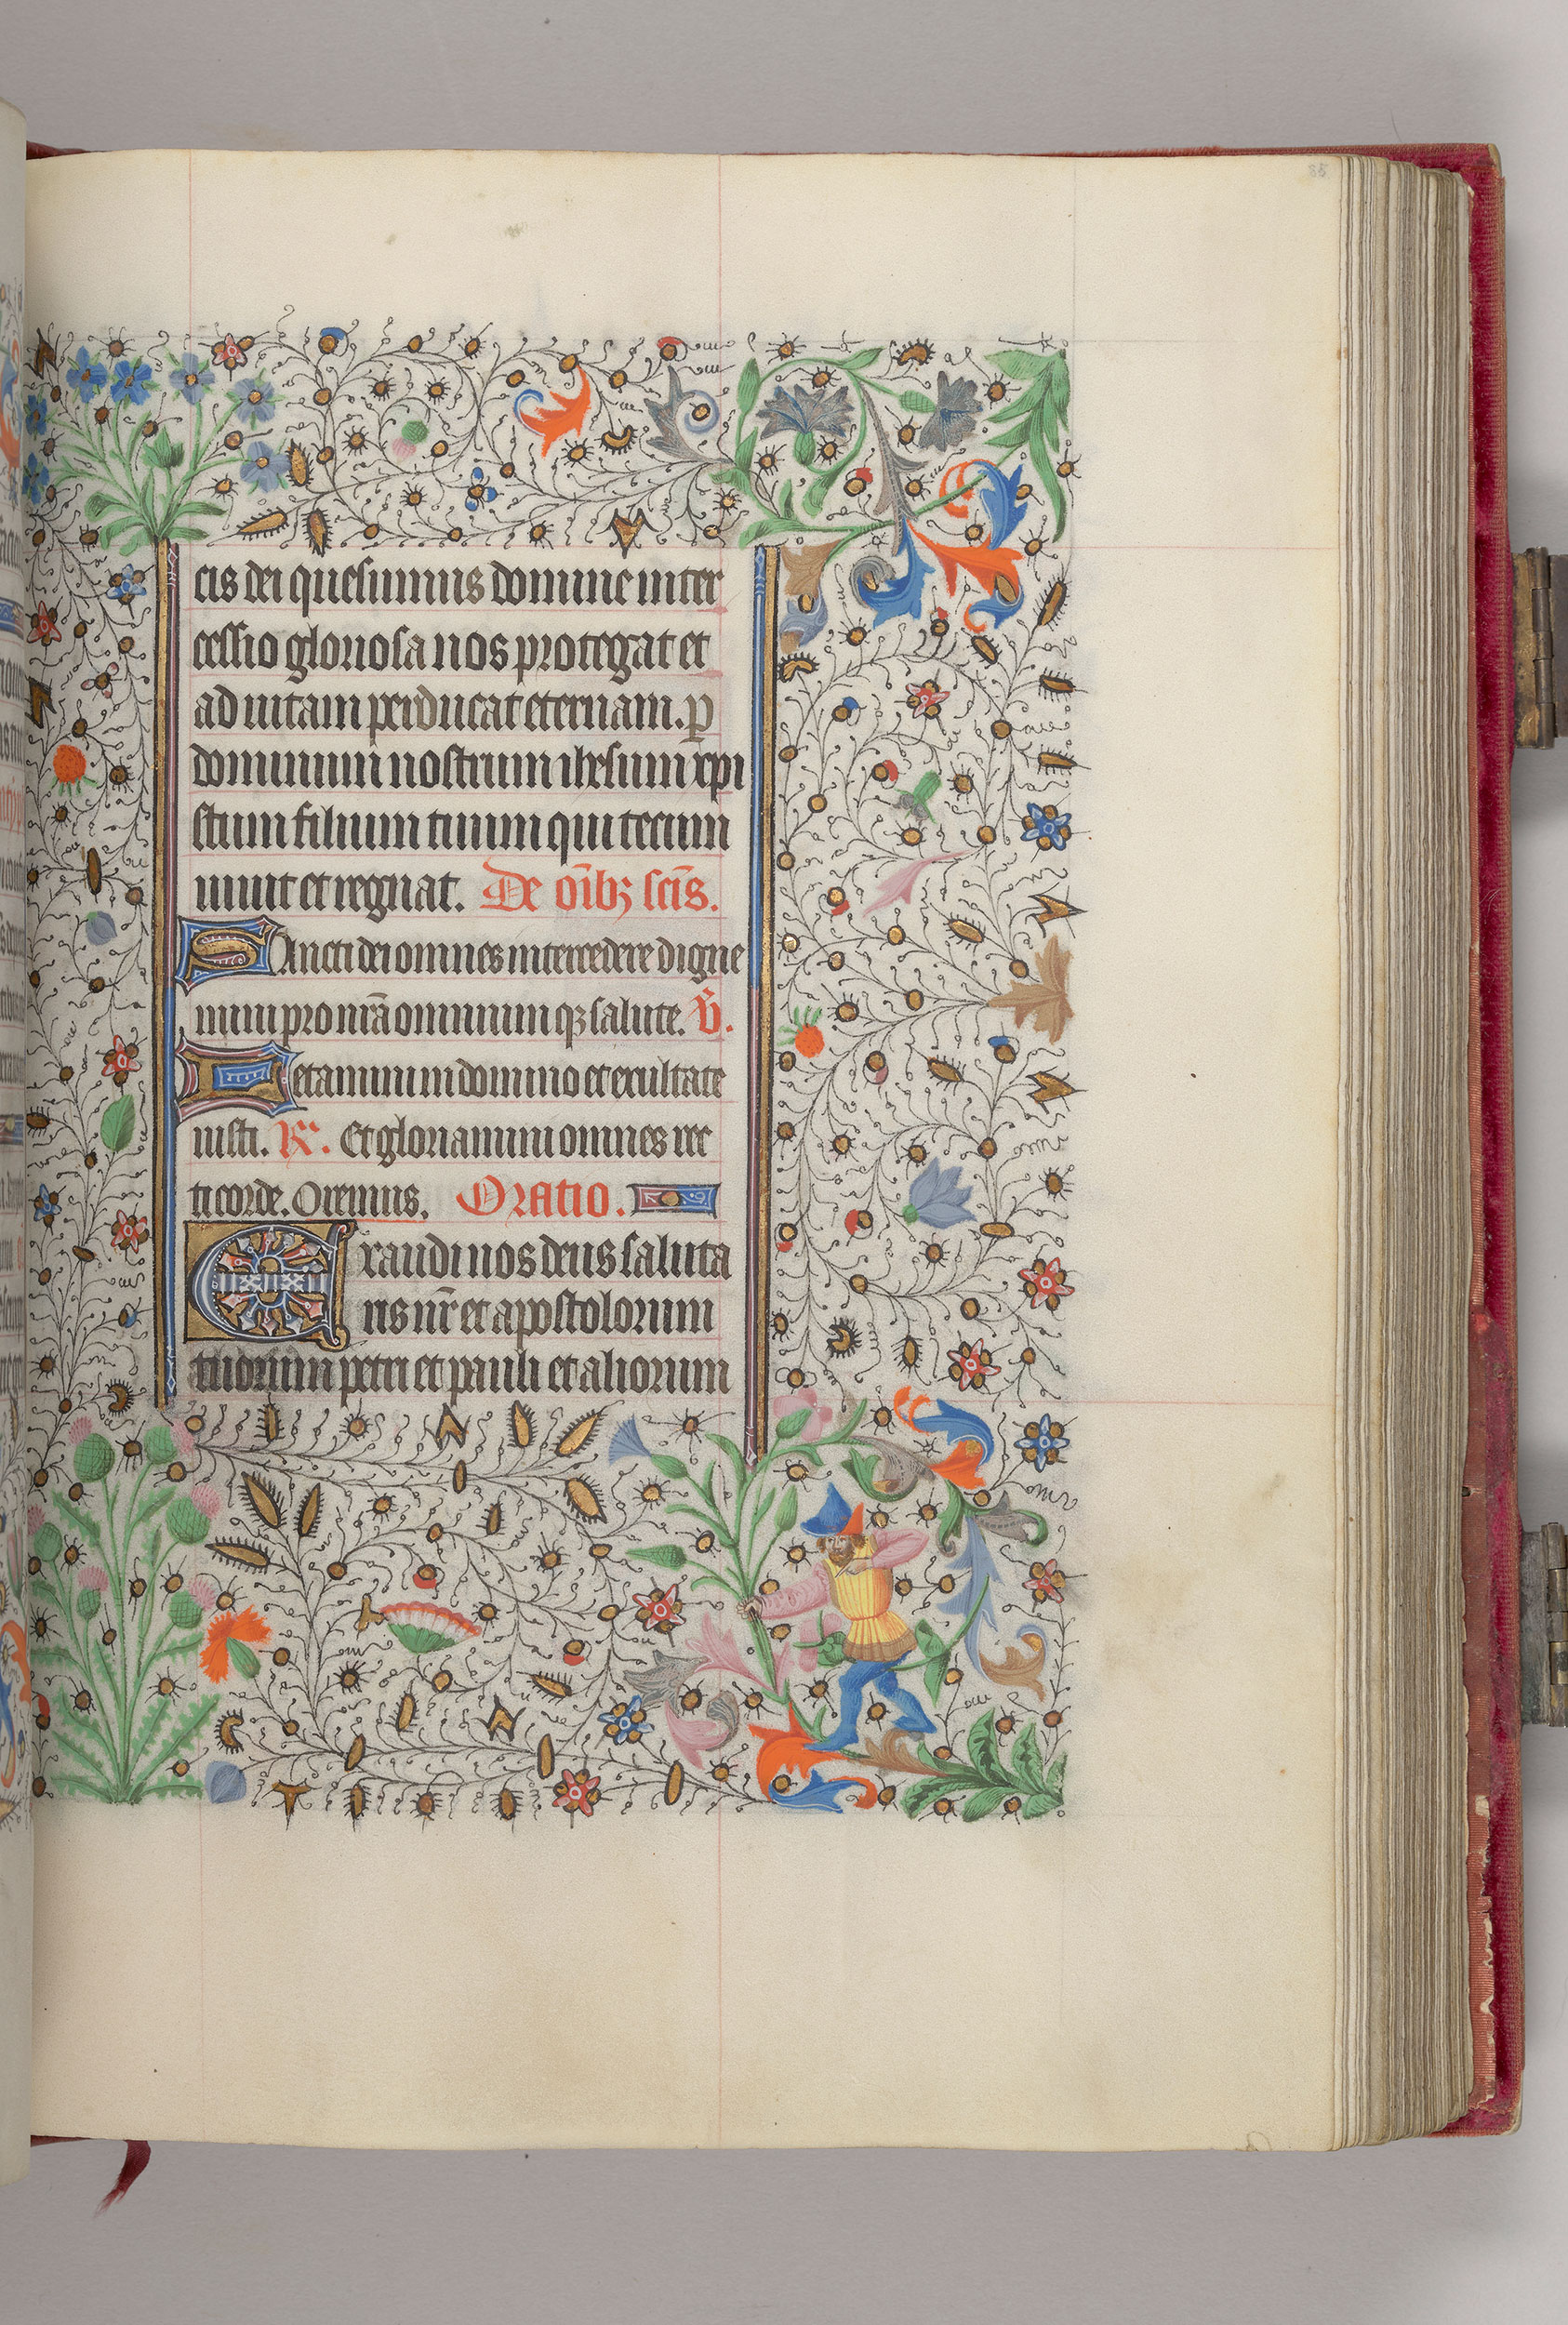 85
cis dei quesumus domine inter
cessio gloriosa nos protegat et
ad uitam perducat eternam. p̲
dominum nostrum ihesum xpi
stum filium tuum qui tecum
uiuit et regnat. De oı̅bꝫ sc̅is.
Sancti dei omnes intercedere digne
mini pro nr̅a omnium qꝫ salute. V̅.
Letamini in domino et exultate
iusti. R̅. Et gloriamini omnes rec
ti corde. Oremus. Oratio.
Exaudi nos deus saluta
ris nr̅ et apostolorum
tuorum petri et pauli et aliorum